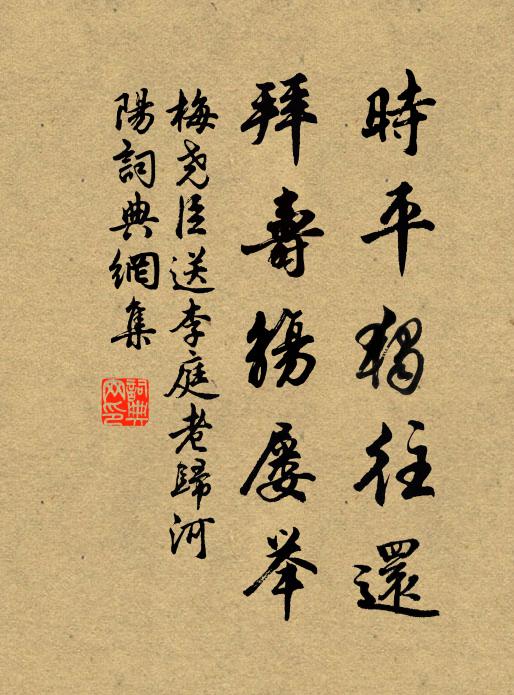 時平獨往還
拜壽觴屢举
梅堯臣送李庭老歸河
陽詞典網集
詞典
网印